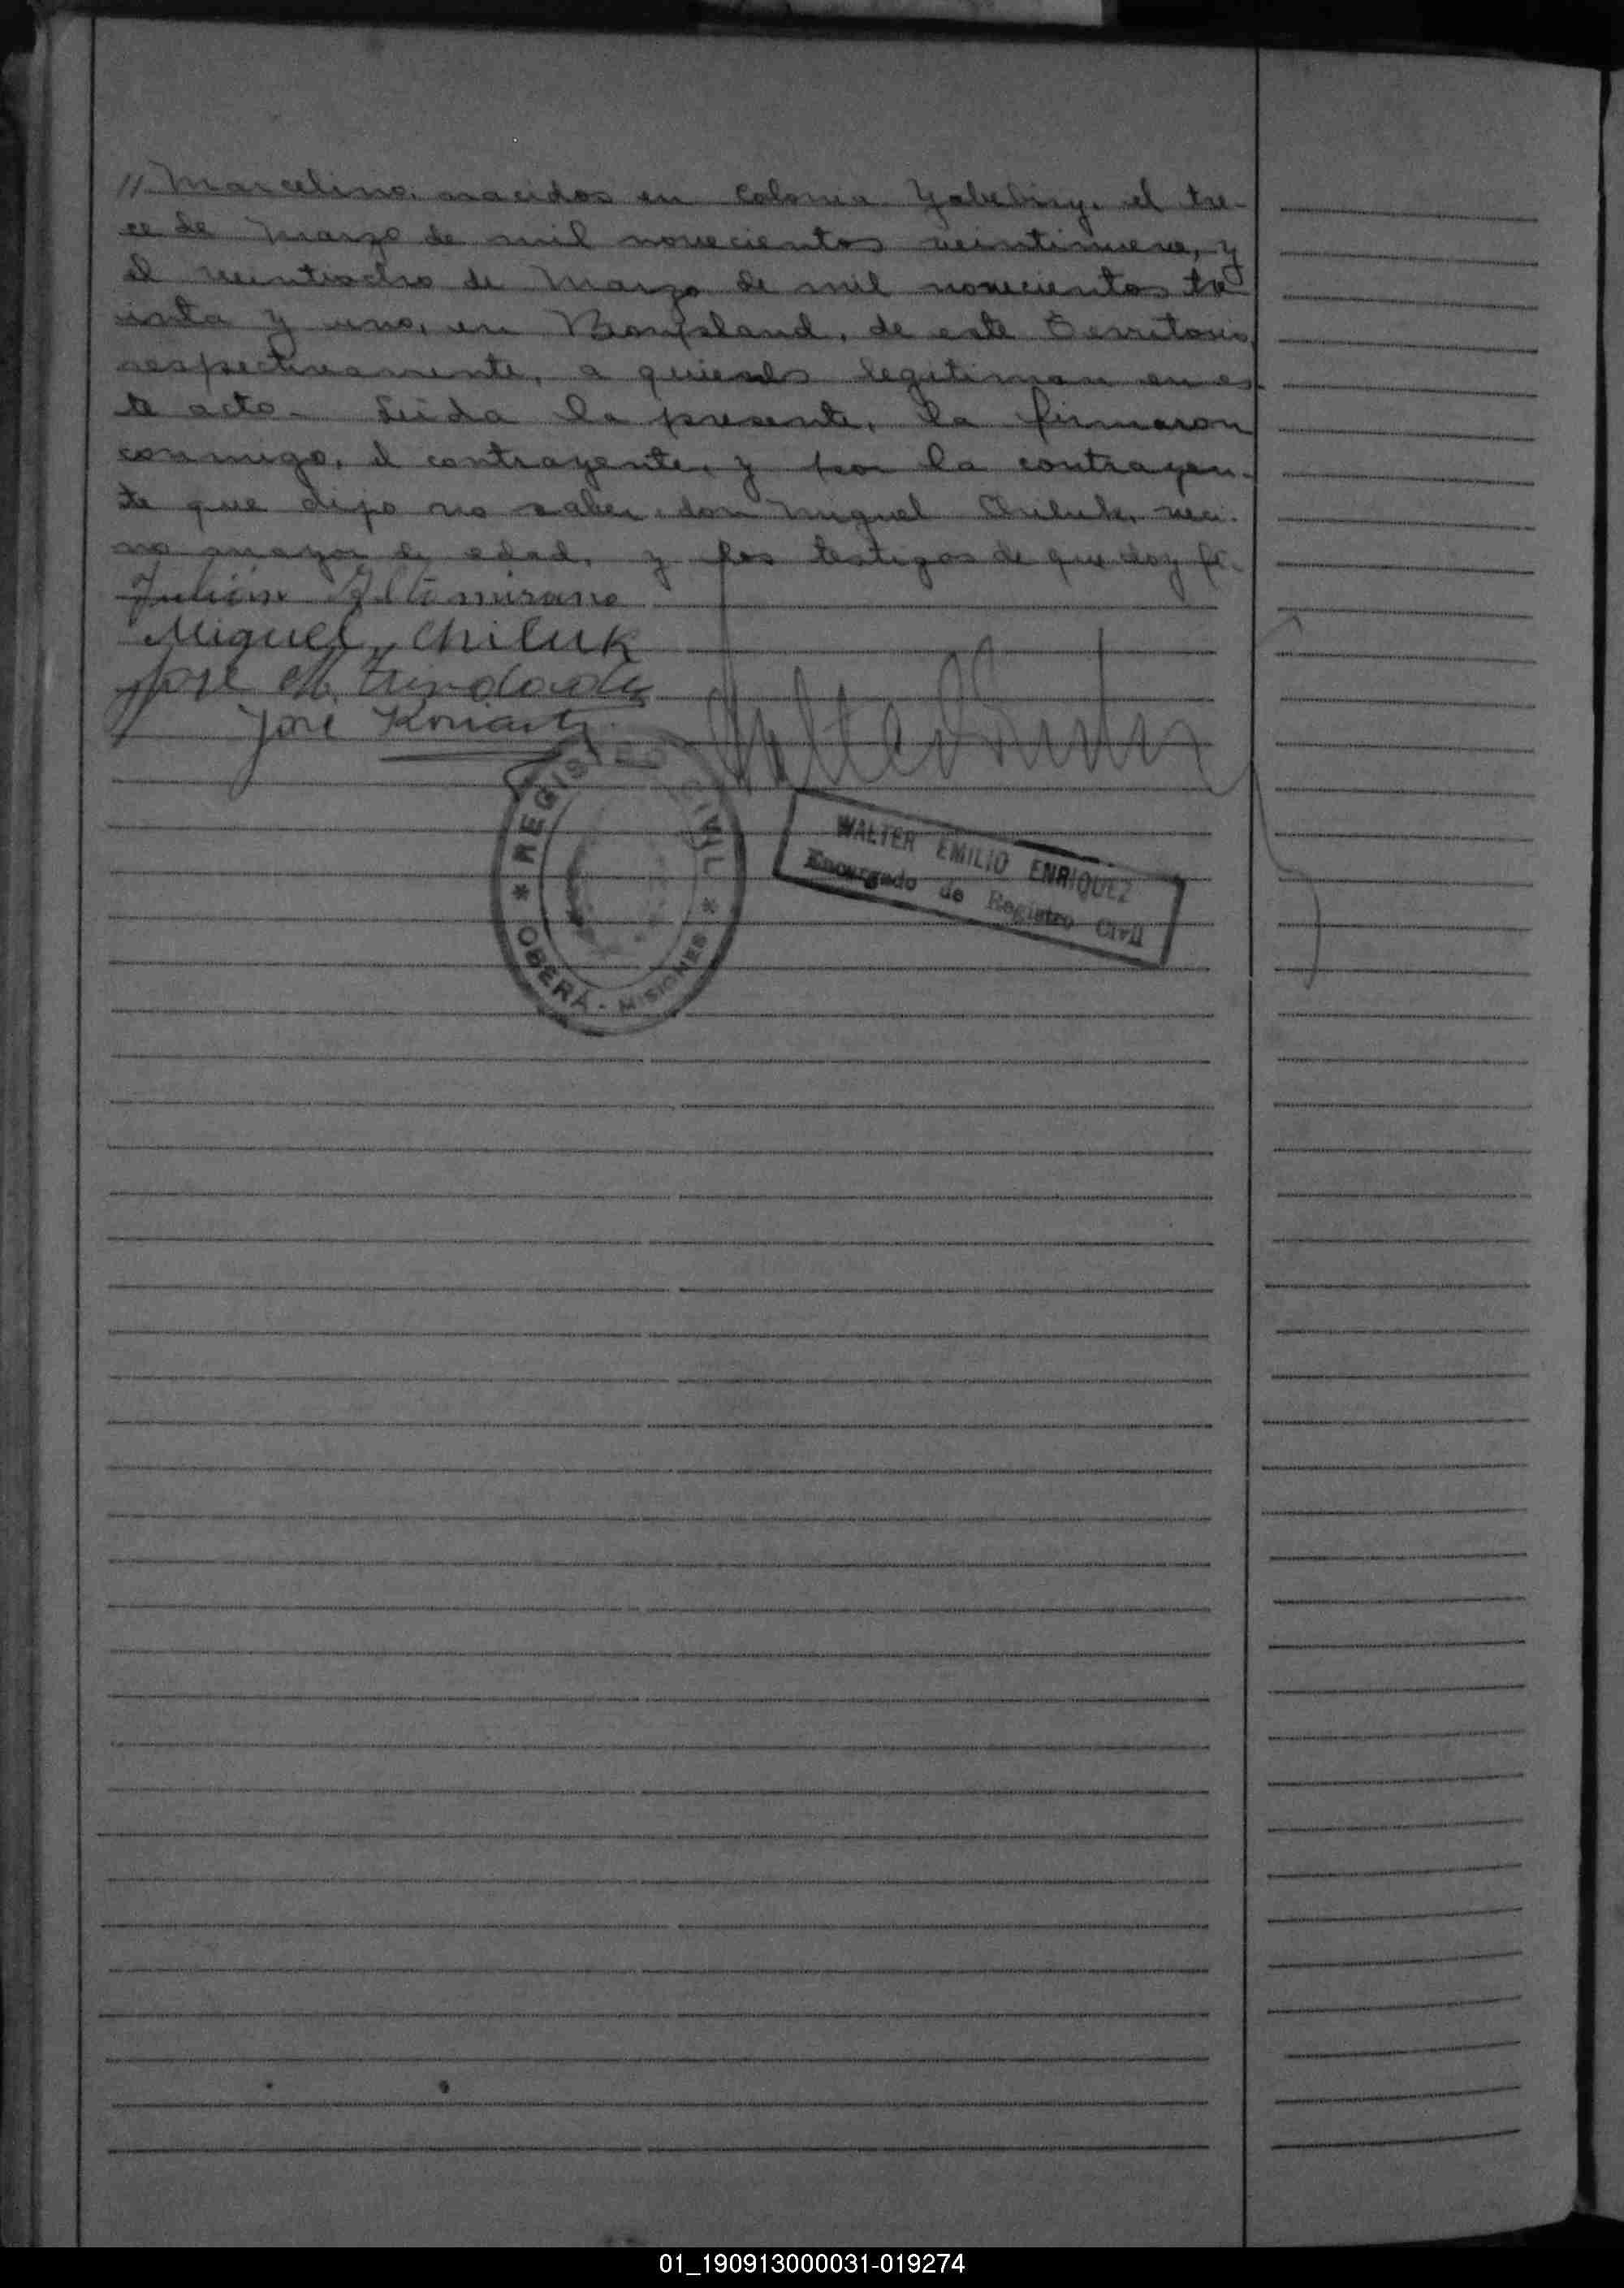 // Marcelino, nacidos en Colonia Yabebiry, el tre-
ce de Marzo de mil novecientos veintinueve, y
el veintiocho de Marzo de mil novecientos tre
inta y uno, en Bonpland, de este Territorio,
respectivamente, a quienes legitiman en es-
te acto - Leida la presente, la firmaron
conmigo, el contrayente, y por la contrayen-
te que dijo no saber, don Miguel Chiluk, veci-
no mayor de edad, y los testigos de que doy fe.
Julián Altamirano
Miguel Chiluk
José M. Trindade
José
REGISTRO CIVIL
* OBERÁ - MISIONES *
WALTER EMILIO ENRIQUEZ
Encargado de Registro Civil
01_190913000031-019274